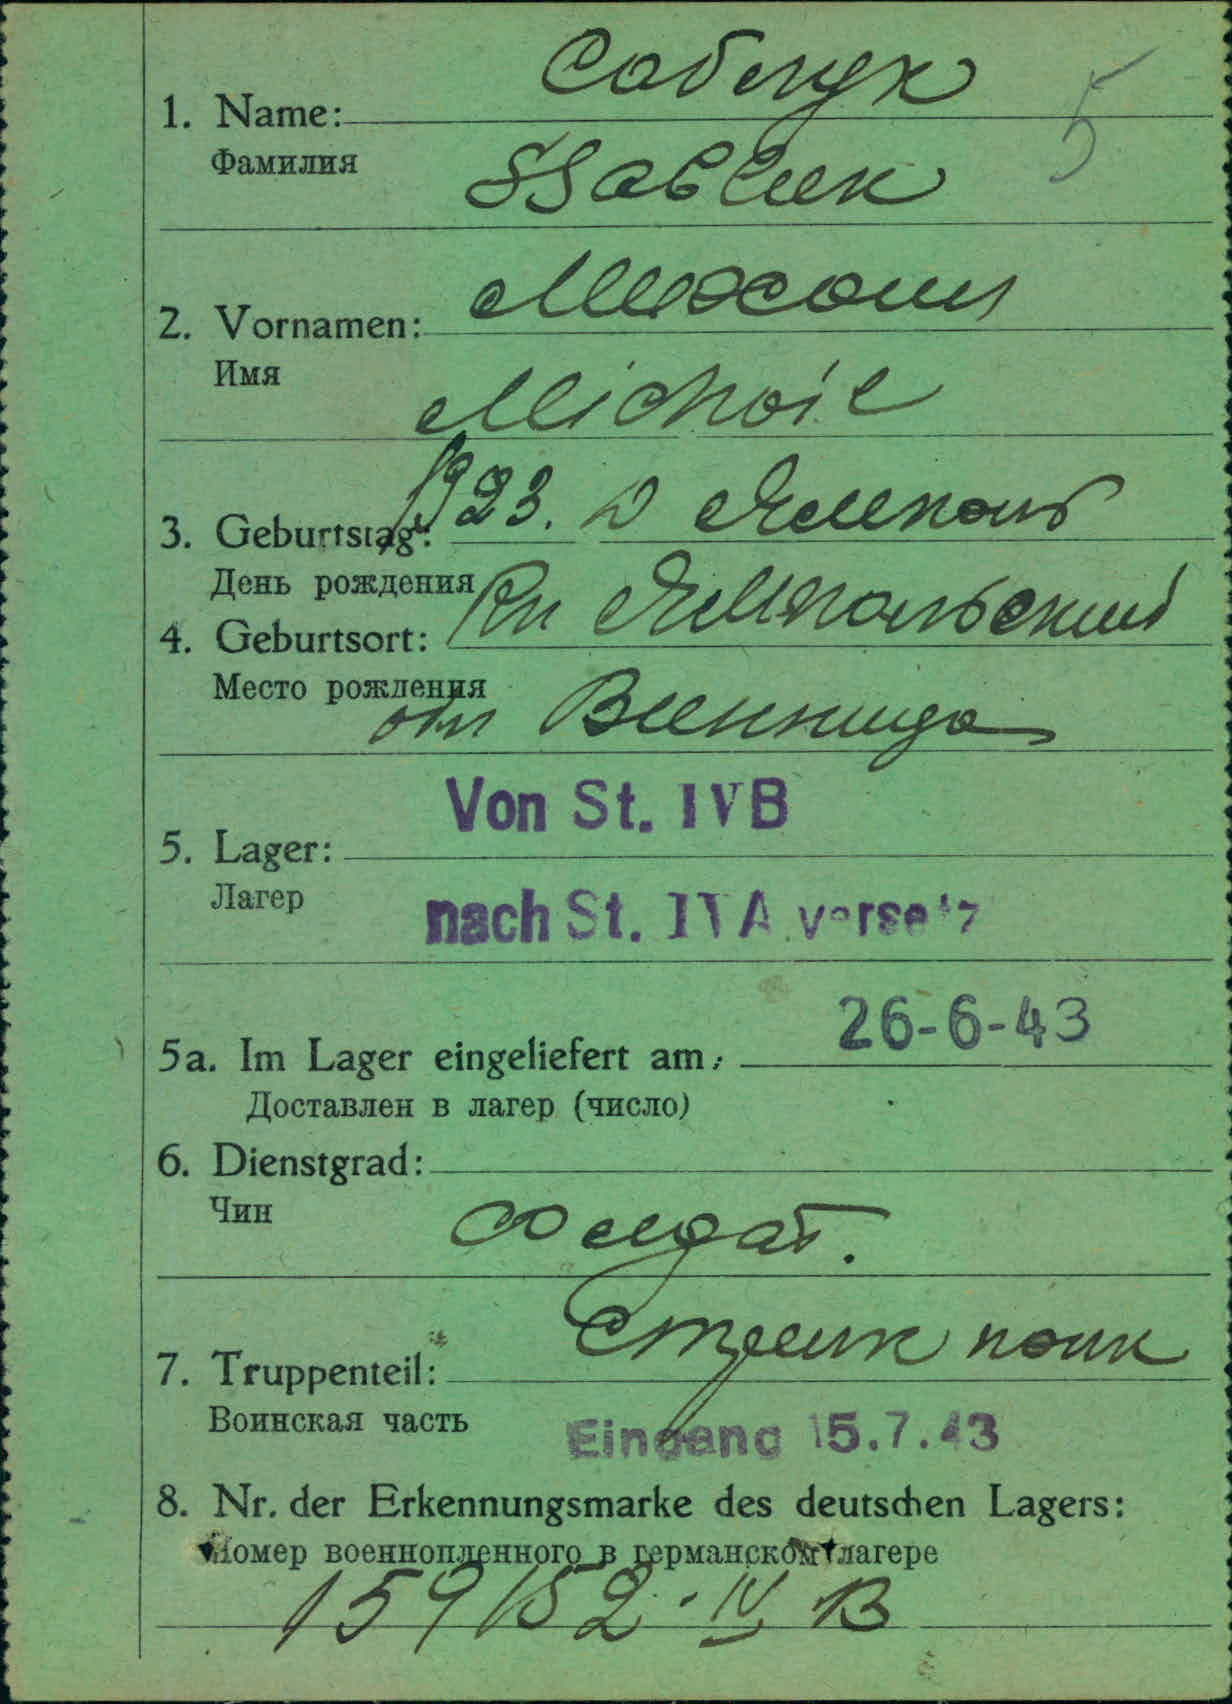 Саблук
5
1. Name:
Фамилия
Sabluk
2. Vornamen: Михаил
Имя
Michail
3. Geburtstag: 1923. д Ямполь
День рождения
4. Geburtsort: Рн Ямпольский
Место рождения
обл Винница
Von St. IVB
5. Lager:
Лагер
nach St. IVA versetz
26-6-43
5a. Im Lager eingeliefert am:
Доставлен в лагер (число)
6. Dienstgrad:
Чин
солдат.
7. Truppenteil: Стрелк полк
Воинская часть
Eingang 15.7.43
8. Nr. der Erkennungsmarke des deutschen Lagers:
Номер военнопленного в германском лагере
159152 · IV B